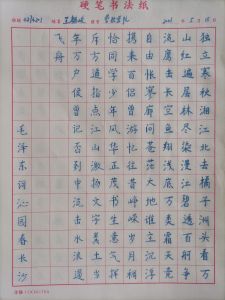 硬笔书法纸
独立寒秋湘江北去橘子洲头看万
山红遍层林尽染漫江碧透百舸争
流鹰击长空鱼翔浅底万类霜天竞
自由怅寥廓问苍茫大地谁主沉浮
携来百侣曾游忆往昔峥嵘岁月稠
恰同学少年风华正茂书生意气挥
斥方遒指点江山激扬文字粪土当
年万户侯曾记否到中流击水浪遏
飞舟
毛泽东词沁园春长沙